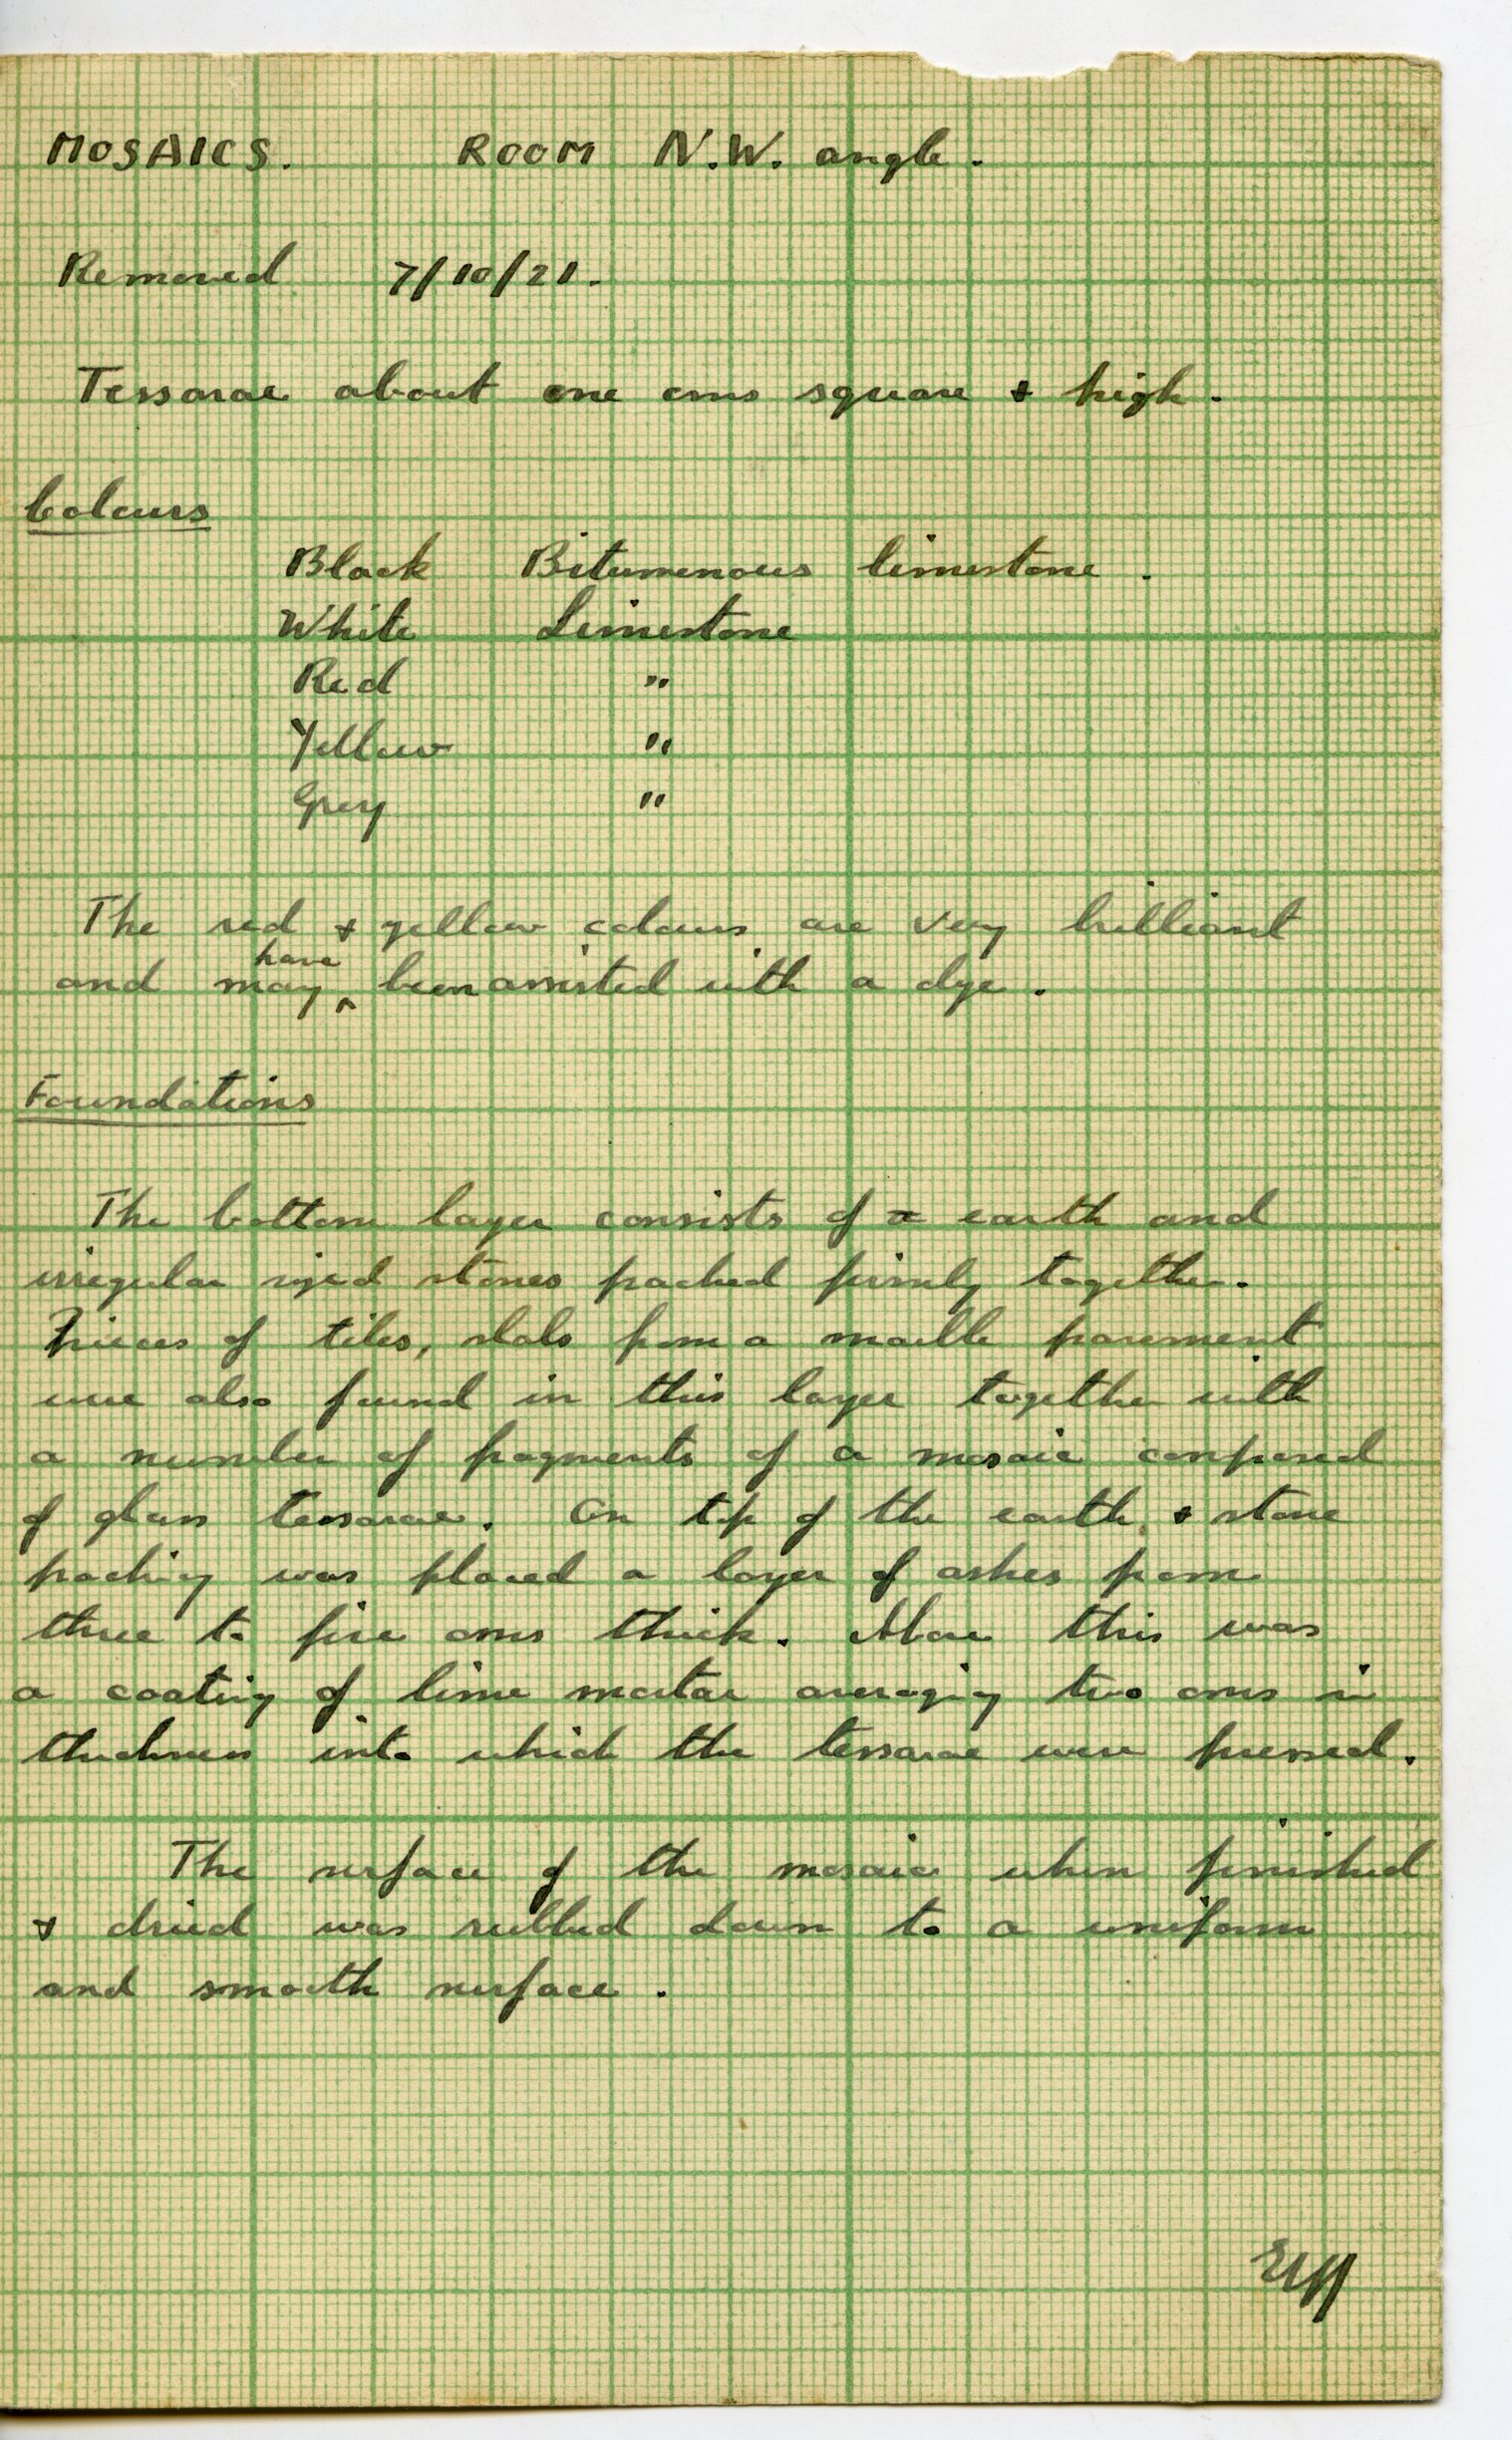 MOSAICS. ROOM N.W. angle.
Removed 7/10/21.
Tessarae about one cms square & high.
Colours
Black Bitumenous limestone.
White Limestone
Red "
Yellow "
Grey "
The red & yellow colours are very brilliant
have
and may ^ been assisted with a dye.
Foundations
The bottom layer consists of a earth and
irregular sized stones packed firmly together.
Pieces of tiles, slabs from a marble pavement
were also found in this layer together with
a number of fragments of a mosaic composed
of glass tessarae. On top of the earth & stone
packing was placed a layer of ashes from
three to five cms thick. Above this was
a coating of lime mortar averaging two cms in
thickness into which the tessarae were pressed.
The surface of the mosaic when finished
& dried was rubbed down to a uniform
and smooth surface.